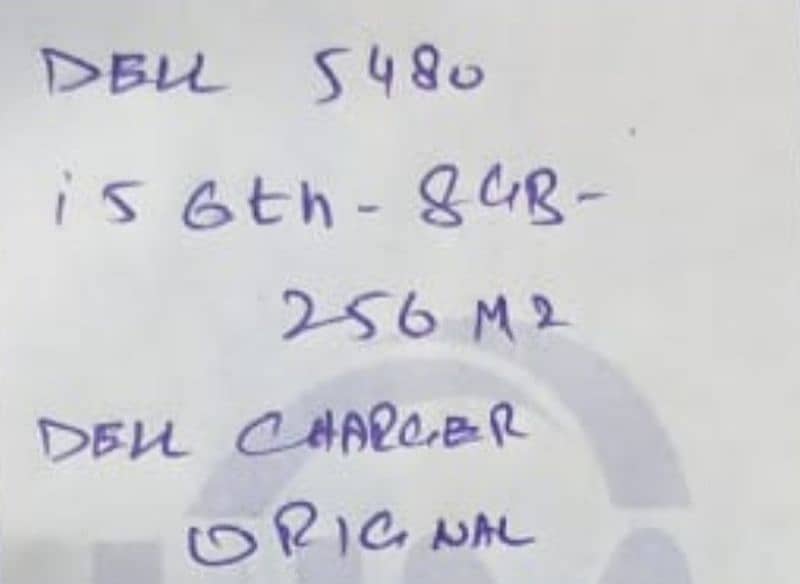 DELL 5480
i5 6th - 8GB -
256 M2
DELL CHARGER
ORIGNAL